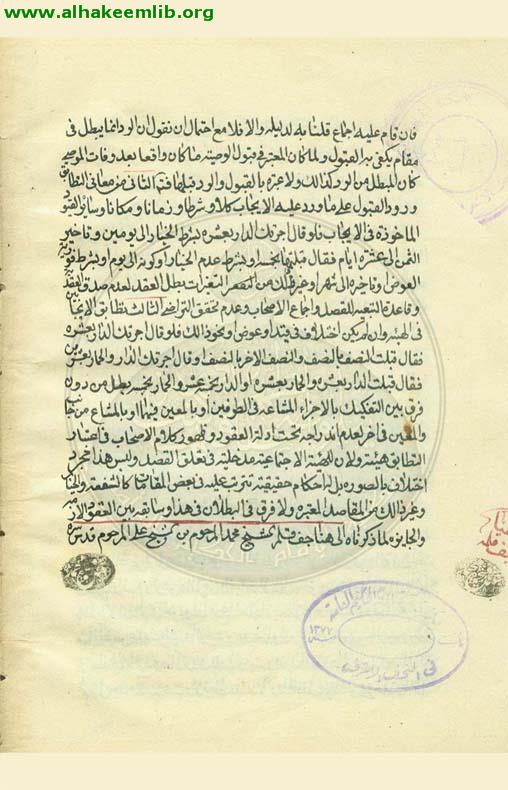 www.alhakeemlib.org
فان قام عليه اجماع قلنا به لدليله والا فلا مع احتمال ان نقول ان الرد انما يبطل فى
مقام يكفى به القبول ولما كان المعتبر فى قبول الوصية ما كان واقعا بعد وفات الموصى
كان المبطل من الرد كذلك ولا عبرة بالقبول والرد قبلها قسم الثانى من معانى التطابق
ورود القبول على ما ورد عليه الايجاب كلا وشرطا وزمانا ومكانا وسائر القيود
الماخوذة فى الايجاب فلو قال اجرتك الدار بعشرة بشرط الخيار الى يومين وتاخير
الثمن الى عشرة ايام فقال قبلتها بخمسة وبشرط عدم الخيار او كونه الى يوم او بشرط فورية
العوض او تاخره الى شهر او غير ذلك من المتغيرات بطل العقد لعدم صدق العقد
وقاعدة التبعية للقصد واجماع الاصحاب وعدم تحقق التراضى الثالث تطابق الايجاب
فى الهيئة وان لم يكن اختلاف فى قيد او عوض او نحو ذلك فلو قال اجرتك الدار بعشرة
فقال قبلت النصف بالنصف والنصف الاخر بالنصف او قال اجرتك الدار والحمار بعشرين
فقال قبلت الدار بعشرة والحمار بعشرة او الدار بخمسة عشر والحمار بخمسة بطل من دون
فرق بين التفكيك بالاجزاء المشاعة فى الطرفين او بالمعين فيهما او بالمشاع من جانب
والمعين فى اخر لعدم اندراجه تحت ادلة العقود وظهور كلام الاصحاب فى اعتبار
التطابق هيئة ولان للهيئة الاجتماعية مدخلية فى تعلق القصد وليس هذا مجرد
اختلاف بالصورة بل له احكام حقيقية تترتب عليه فى بعض المقامات كالشفعة والخيار
وغير ذلك من المقاصد المعتبرة ولا فرق فى البطلان فى هذا وسابقه بين العقود اللازمة
والجايزة لما ذكرناه الى هنا جف قلم الشيخ محمد المرحوم بن الشيخ على المرحوم قدس سره
العامة
١٣٧٧
فى النجف الاشرف